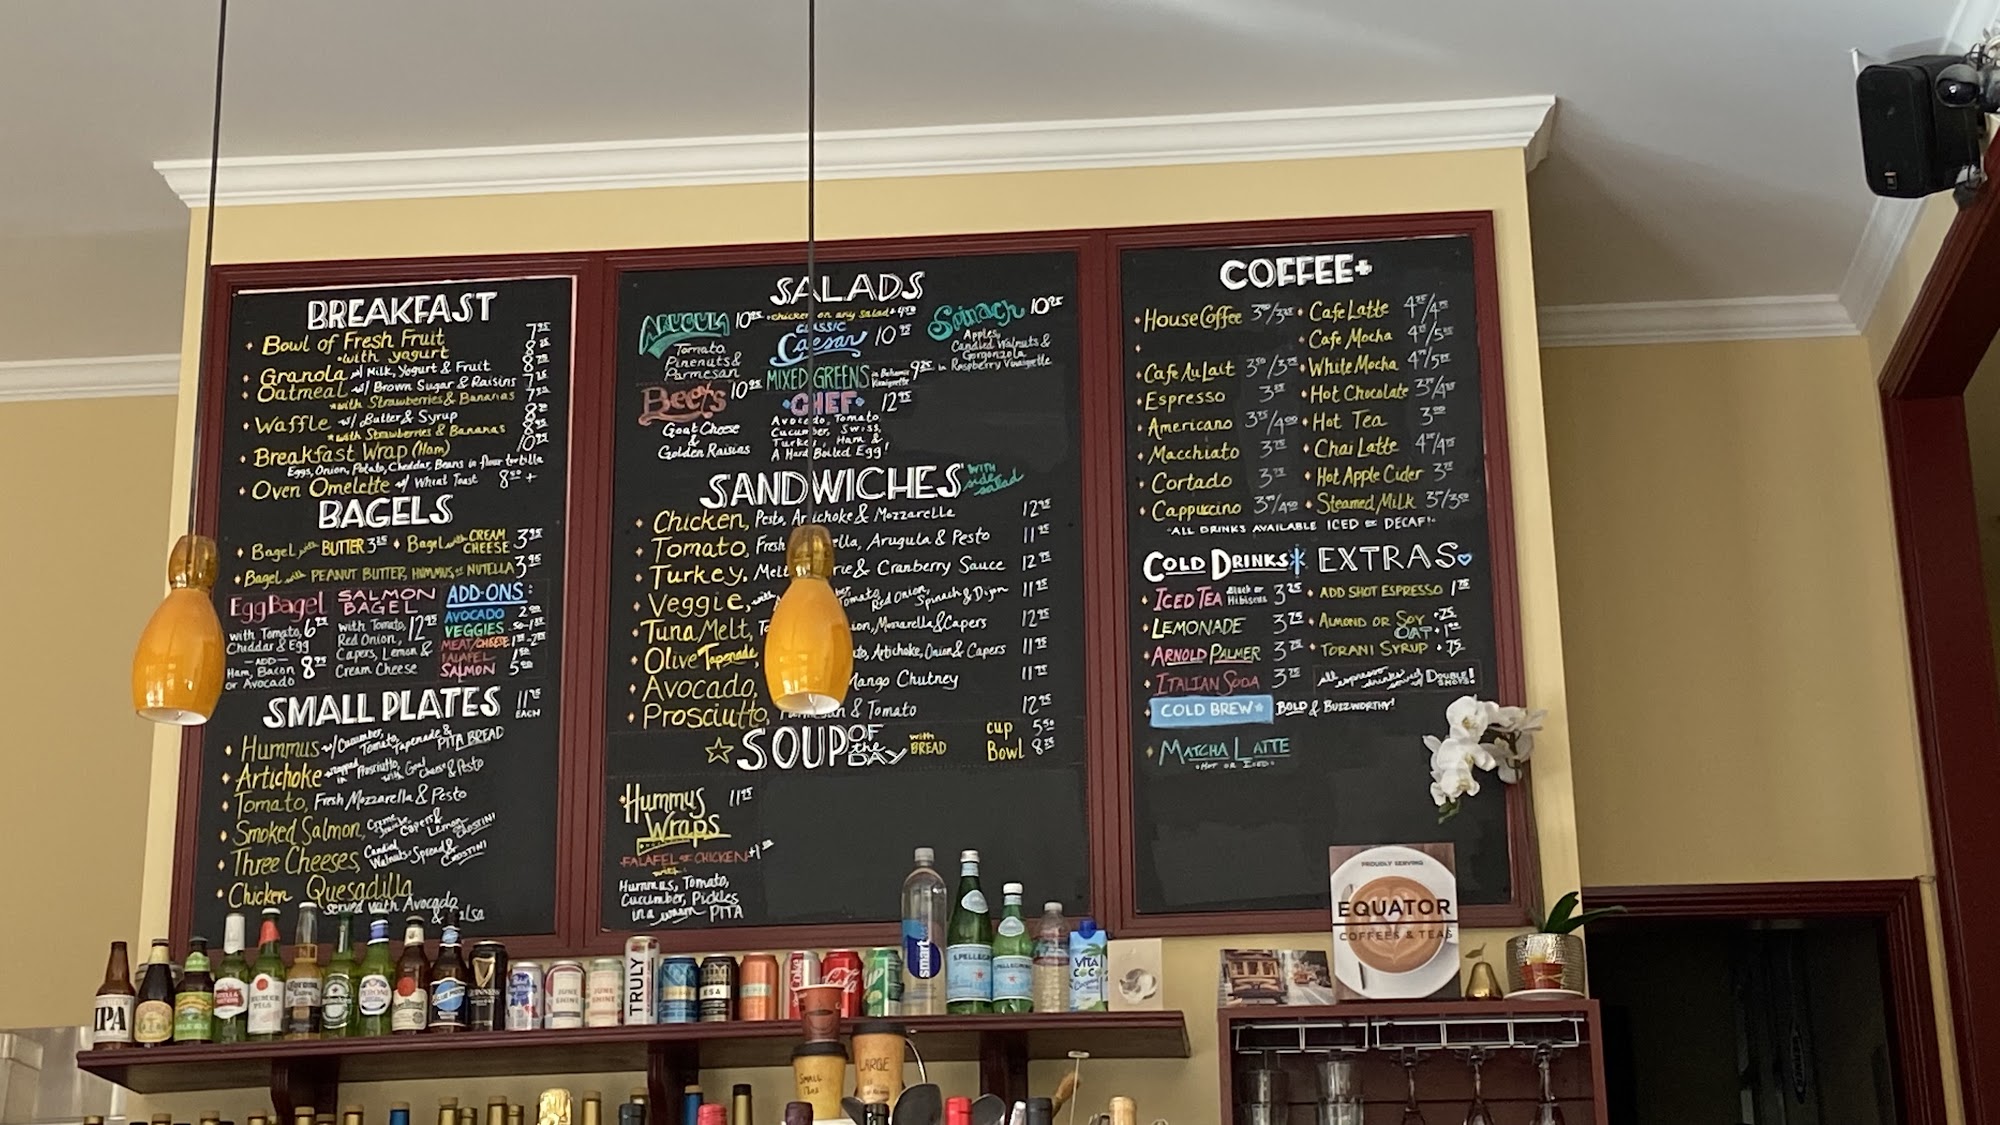 BREAKFAST
Bowl of Fresh Fruit
with yogurt
Granola w/ Milk, Yogurt & Fruit
Oatmeal w/ Brown Sugar & Raisins
with Strawberries & Bananas
Waffle w/ Butter & Syrup
with Strawberries & Bananas
Breakfast Wrap (Ham)
Eggs, Onion, Potato, Cheddar, Beans in flour tortilla
Oven Omelette w/ Wheat Toast 8.50 +
BAGELS
Bagel with BUTTER 3.25
Bagel with CREAM CHEESE 3.95
Bagel with PEANUT BUTTER, HUMMUS, or NUTELLA 3.95
Egg Bagel
with Tomato, 6.25
Cheddar & Egg
—ADD—
Ham, Bacon 8.95
or Avocado
SALMON
BAGEL
with Tomato, 12.95
Red Onion,
Capers, Lemon &
Cream Cheese
ADD-ONS:
AVOCADO 2.00
VEGGIES .50-1.50
MEAT/CHEESE
FALAFEL
SALMON 5.00
SMALL PLATES 11.95 EACH
Hummus w/ Cucumber, Tomato, Tapenade & PITA BREAD
Artichoke wrapped in Prosciutto, with Goat Cheese & Pesto
Tomato, Fresh Mozzarella & Pesto
Smoked Salmon, Creme fraiche, Capers & Lemon CROSTINI
Three Cheeses, Candied Walnuts, Spread & CROSTINI
Chicken Quesadilla
served with Avocado
& Salsa
SALADS
chicken on any salad + 4.50
ARUGULA 10.95
Tomato,
Pinenuts &
Parmesan
CLASSIC
Caesar 10.95
Spinach 10.95
Apples,
Candied Walnuts &
Gorgonzola
in Raspberry Vinaigrette
MIXED GREENS in Balsamic Vinaigrette 9.25
Beets 10.95
Goat Cheese
&
Golden Raisins
CHEF 12.95
Avocado, Tomato,
Cucumber, Swiss,
Turkey, Ham &
A Hard Boiled Egg!
SANDWICHES with side salad
Chicken, Pesto, Artichoke & Mozzarella 12.95
Tomato, Fresh ella, Arugula & Pesto 11.95
Turkey, Melt rie & Cranberry Sauce 12.95
Veggie, with Tomato, Red Onion, Spinach & Dijon 11.95
Tuna Melt, ion, Mozzarella & Capers 12.95
Olive Tapenade Artichoke, Onion & Capers 11.95
Avocado, Mango Chutney 11.95
Prosciutto, Parmesan & Tomato 12.95
SOUP OF the DAY with BREAD
cup 5.50
Bowl 8.25
Hummus 11.95
Wraps
FALAFEL or CHICKEN
with
Hummus, Tomato,
Cucumber, Pickles
in a warm PITA
COFFEE+
House Coffee
Cafe Au Lait
Espresso
Americano 3.75/4.00
Macchiato 3.75
Cortado 3.75
Cappuccino
Cafe Latte 4.25/4.75
Cafe Mocha
White Mocha
Hot Chocolate
Hot Tea 3.00
Chai Latte
Hot Apple Cider
Steamed Milk
ALL DRINKS AVAILABLE ICED or DECAF!
COLD DRINKS
ICED TEA Black or Hibiscus 3.25
LEMONADE 3.75
ARNOLD PALMER 3.75
ITALIAN SODA 3.75
COLD BREW BOLD & BUZZWORTHY!
MATCHA LATTE
HOT OR ICED
EXTRAS
ADD SHOT ESPRESSO 1.75
ALMOND OR SOY +.75
OAT +1.00
TORANI SYRUP +.75
all espresso drinks served w/ DOUBLE SHOTS!
PROUDLY SERVING
EQUATOR
COFFEES & TEAS
IPA
PALE ALE
STELLA
Corona
Heineken
BLUE MOON
GUINNESS
JUNE SHINE
JUNE SHINE
TRULY
smart
S.PELLEGRINO
S.PELLEGRINO
VITA COCO
SMALL
12oz
LARGE